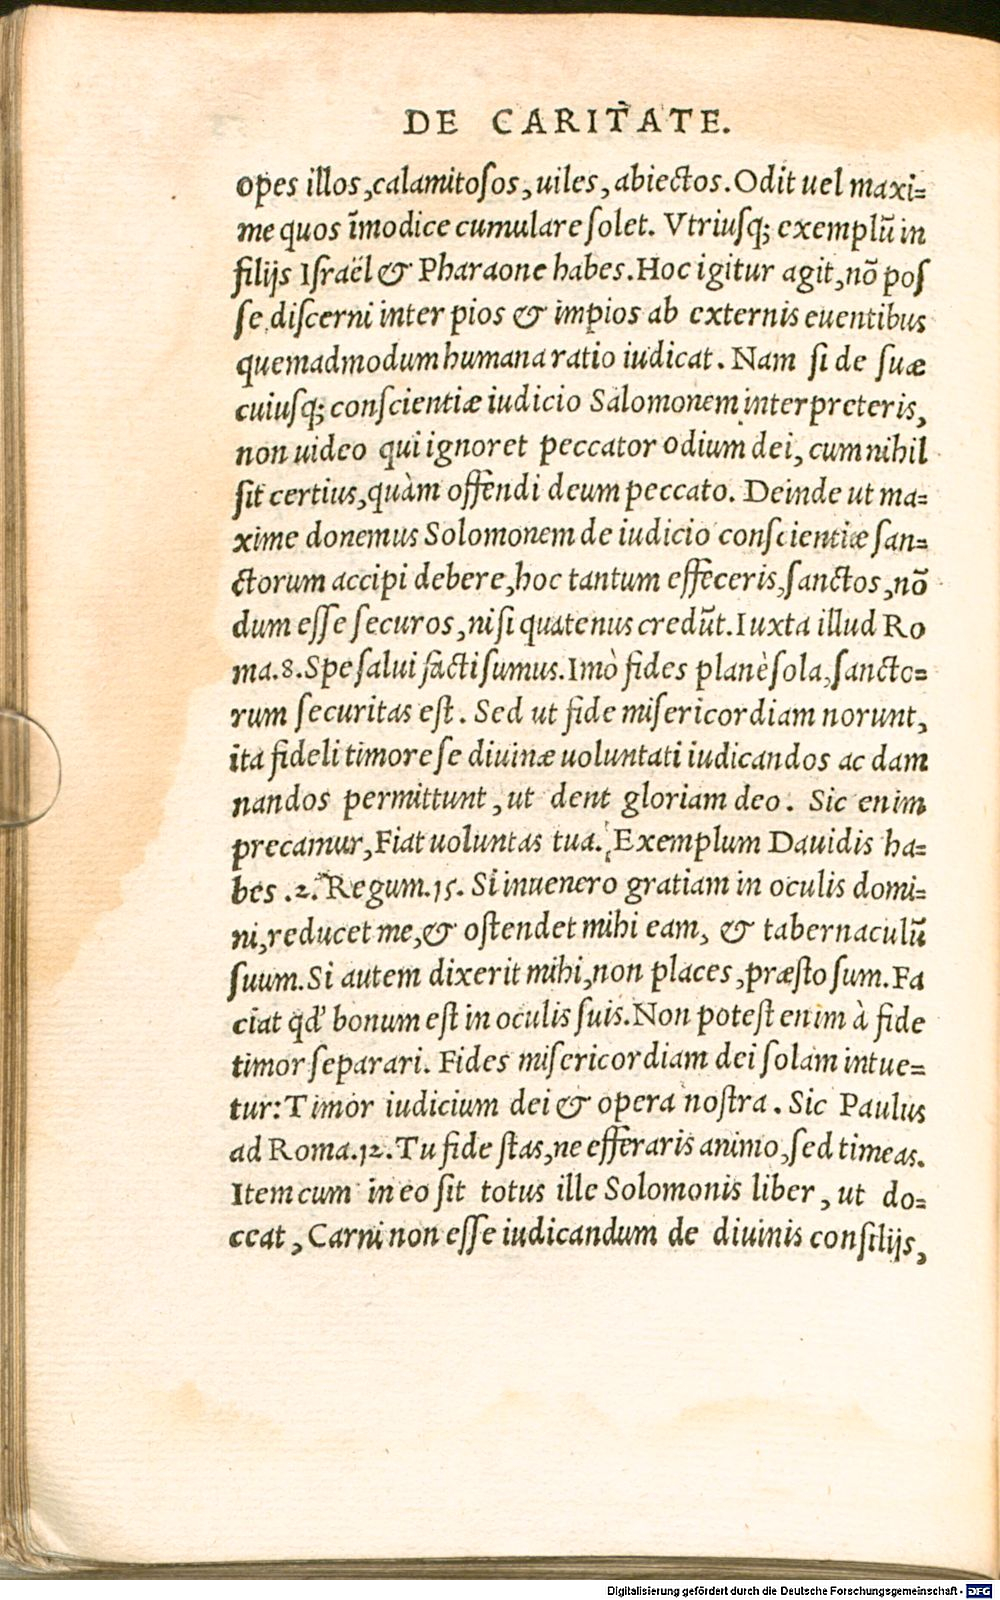 DE CARITATE.
opes illos, calamitoſos, uiles, abiectos. Odit uel maxi=
me quos īmodice cumulare ſolet. Vtriuſq; exemplū in
filijs Iſraël & Pharaone habes. Hoc igitur agit, nō poſ
ſe diſcerni inter pios & impios ab externis euentibus
quemadmodum humana ratio iudicat. Nam ſi de ſuæ
cuiuſq; conſcientiæ iudicio Salomonem interpreteris,
non uideo qui ignoret peccator odium dei, cum nihil
ſit certius, quàm offendi deum peccato. Deinde ut ma=
xime donemus Solomonem de iudicio conſcientiæ ſan=
ctorum accipi debere, hoc tantum effeceris, ſanctos, nō
dum eſſe ſecuros, niſi quatenus credūt. Iuxta illud Ro
ma.8. Spe ſalui facti ſumus. Imò fides planè ſola, ſancto=
rum ſecuritas eſt. Sed ut fide miſericordiam norunt,
ita fideli timore ſe diuinæ uoluntati iudicandos ac dam
nandos permittunt, ut dent gloriam deo. Sic enim
precamur, Fiat uoluntas tua. Exemplum Dauidis ha=
bes .2. Regum.15. Si inuenero gratiam in oculis domi=
ni, reducet me, & oſtendet mihi eam, & tabernaculū
ſuum. Si autem dixerit mihi, non places, præſto ſum. Fa
ciat qđ bonum eſt in oculis ſuis. Non poteſt enim à fide
timor ſeparari. Fides miſericordiam dei ſolam intue=
tur: Timor iudicium dei & opera noſtra. Sic Paulus
ad Roma.12. Tu fide ſtas, ne efferaris animo, ſed timeas.
Item cum in eo ſit totus ille Solomonis liber, ut do=
ceat, Carni non eſſe iudicandum de diuinis conſilijs,
Digitalisierung gefördert durch die Deutsche Forschungsgemeinschaft - DFG